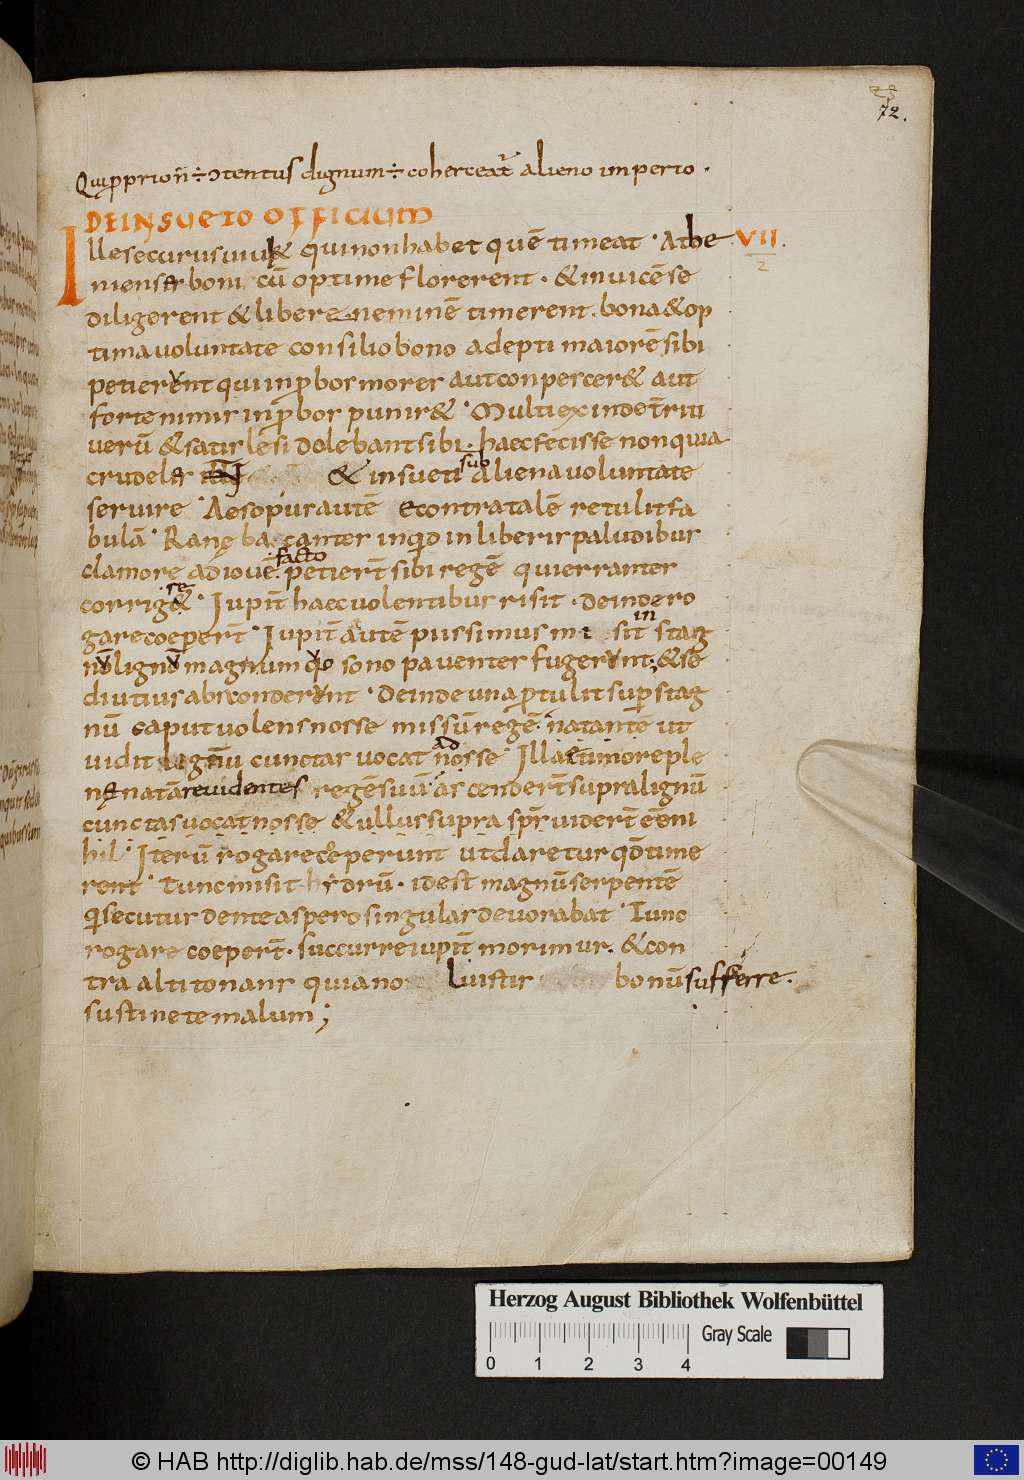 72.
Qui pprio n̄ ÷ ɔtentus dignum ÷ coherceat͛ alieno imperio .
DE INSUETO OFFICIUM
Ille securus uiu& qui non habet quē timeat · Athe VII.
niensę boni cū optime florerent · & inuicē se
diligerent & libere neminē timerent . bona & op
tima uoluntate consilio bono adepti maiorē sibi
petierunt qui inpbos mores aut conpescer& aut
forte nimis inpbos punir& · Multi ex inde t̄riti
uerū & satis lesi dolebant sibi · haec fecisse non quia
crudelę & insueti suo aliena uoluntate
seruire · Aesopus autē econtra talē retulit fa
bulā · Ranę ba cantes inqid in liberis paludibus
clamore ad iouē facto petiert̄ sibi regē qui errantes
corrig& se · Jupit̄ haec uolentibus risit · deinde ro
gare coepert̄ · Jupit̄ autē piissimus mi sit in stag
nū lignū magnum qo sono pauentes fugerunt; & se
diutius absconderunt · deinde una ptulit sup stag
nū caput uolens nosse missū regē · natantē ut
uidit lignū cunctas uocat ad nosse · Illae timore ple
nę natare uidentes regē suū ascendert̄ supra lignū
cunctas uocat nosse & ullus supra spr̄ uidert̄ eē eni
hil · Iterū rogare cęperunt ut daretur qd̄ time
rent · tunc misit hydrū · id est magnū serpentē
qi secutus dente aspero singulas deuorabat · Tunc
rogare coepert̄ · succurre iupit̄ morimur . & con
tra altitonans quia no luistis bonū sufferre .
sustinete malum ;
Herzog August Bibliothek Wolfenbüttel
Gray Scale
0 1 2 3 4
© HAB http://diglib.hab.de/mss/148-gud-lat/start.htm?image=00149